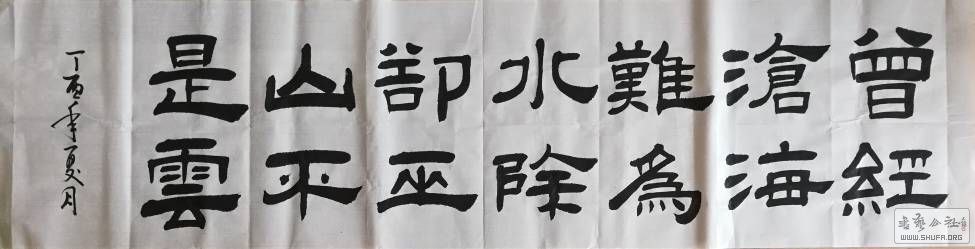 曾經
滄海
難為
水除
卻巫
山不
是雲
丁酉年夏月
书艺公社
WWW.SHUFA.ORG